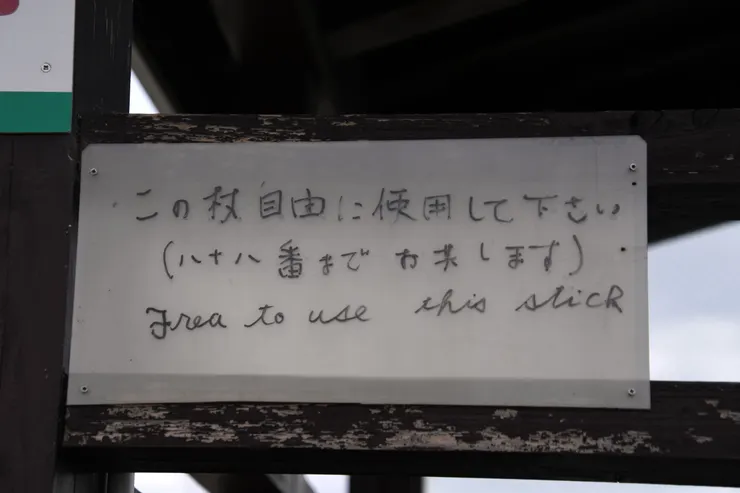 この杖自由に使用して下さい
(八十八番までお共します)
Frea to use this stick